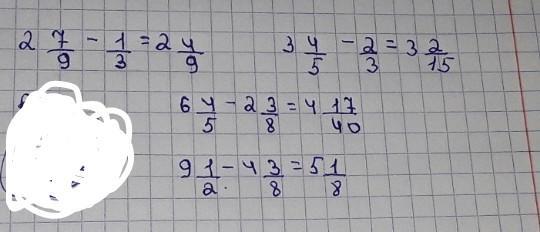 2 7/9 - 1/3 = 2 4/9    3 4/5 - 2/3 = 3 2/15
6 4/5 - 2 3/8 = 4 17/40
9 1/2 - 4 3/8 = 5 1/8